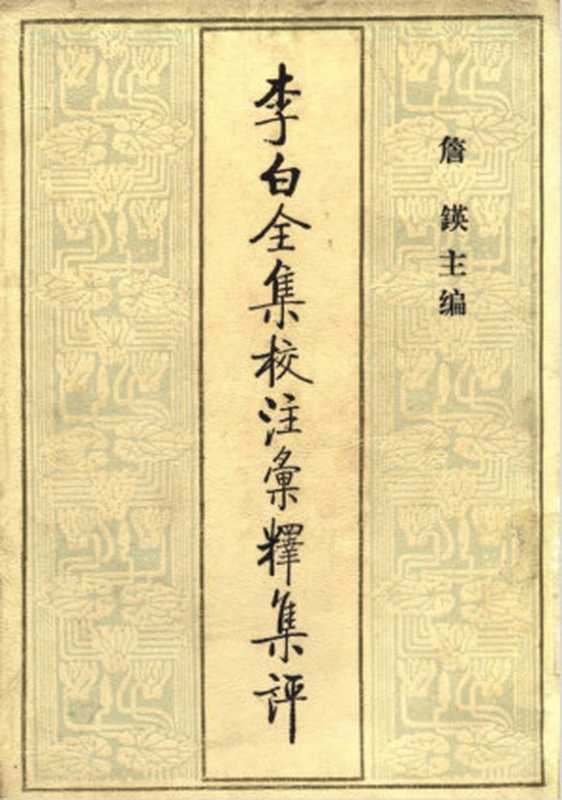 李白全集校注彙釋集評
詹鍈主编